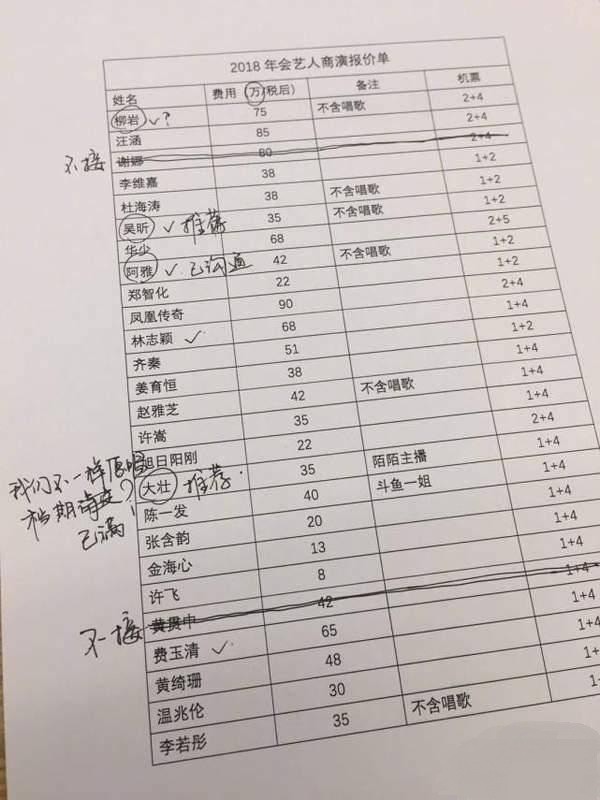 2018 年会艺人商演报价单
姓名 费用（万/税后） 备注 机票
柳岩 ✓? 75 不含唱歌 2+4
汪涵 85 2+4
不接 谢娜 80 2+4
李维嘉 38 1+2
杜海涛 38 不含唱歌 1+2
吴昕 ✓ 推荐 35 不含唱歌 1+2
华少 68 2+5
阿雅 ✓ 已沟通 42 不含唱歌 1+2
郑智化 22 1+2
凤凰传奇 90 2+4
林志颖 ✓ 68 1+4
齐秦 51 1+2
姜育恒 38 1+4
赵雅芝 42 不含唱歌 1+4
许嵩 35 1+4
旭日阳刚 22 2+4
我们不一样原唱
大壮 推荐 35 陌陌主播 1+4
档期
已满！
陈一发 40 斗鱼一姐 1+4
张含韵 20 1+4
金海心 13 1+4
许飞 8 1+4
不接 黄贯中 42 1+4
费玉清 ✓ 65 1+4
黄绮珊 48 1+4
温兆伦 30 1+
李若彤 35 不含唱歌 1+